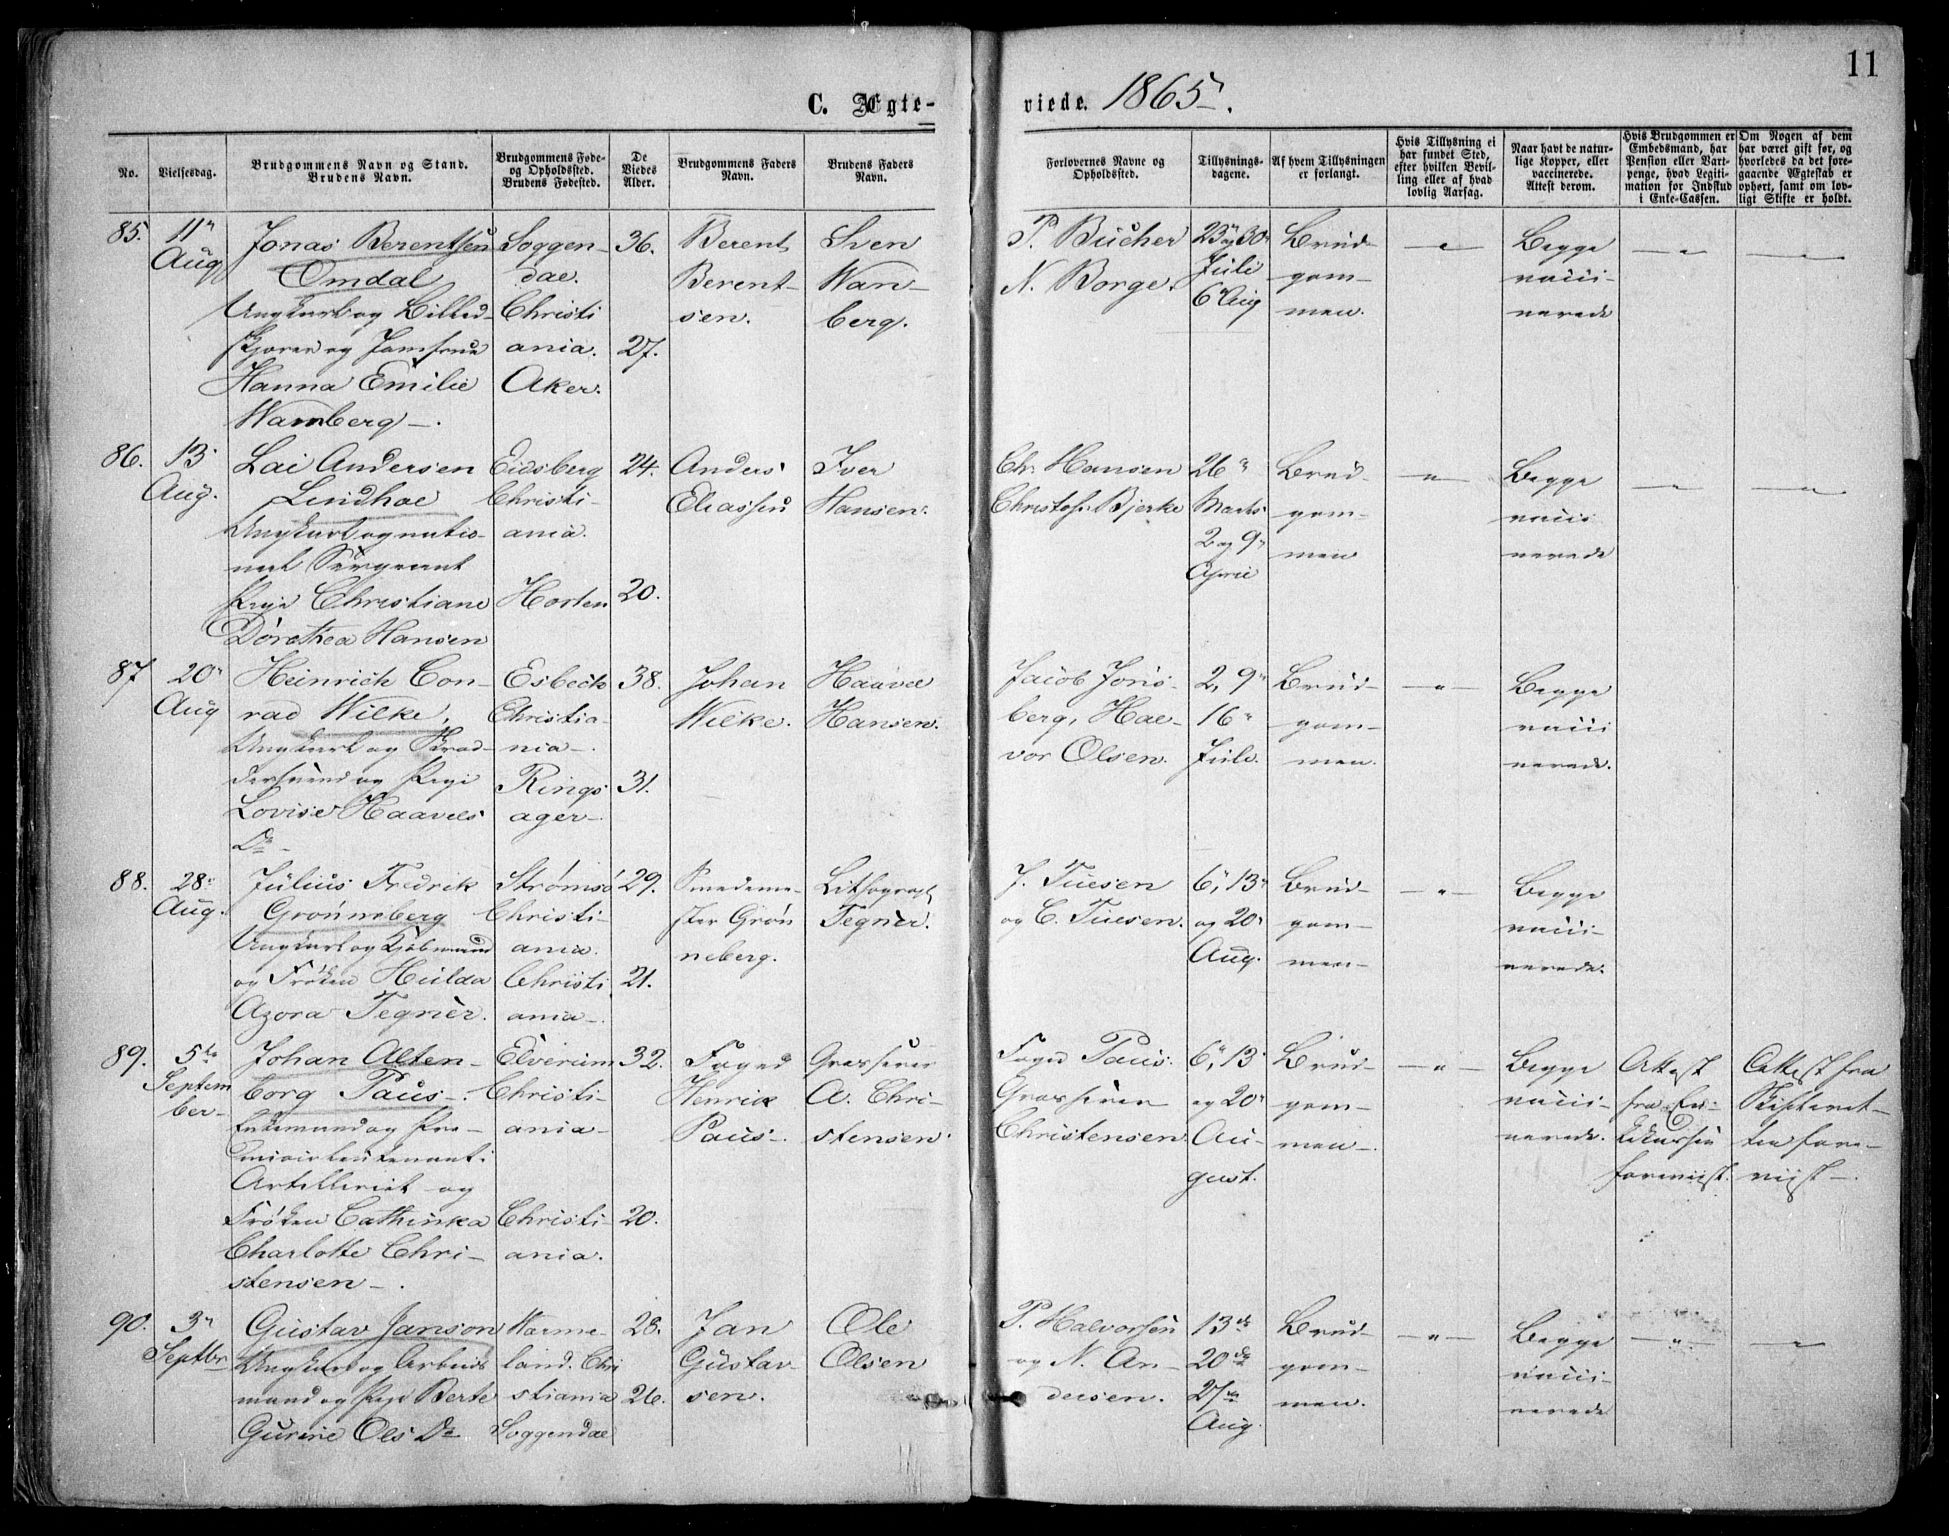 11
C. Ægte-
viede. 1865.
No.
Vielsesdag.
Brudgommens Navn og Stand.
Brudens Navn.
Brudgommens Føde-
og Opholdssted.
Brudens Fødested.
De
Viedes
Alder.
Brudgommens Faders
Navn.
Brudens Faders
Navn.
Forlovernes Navne og
Opholdssted.
Tillysnings-
dagene.
Af hvem Tillysningen
er forlangt.
Hvis Tillysning ei
har fundet Sted,
efter hvilken Bevil-
ling eller af hvad
lovlig Aarsag.
Naar havt de natur-
lige Kopper, eller
vaccinerede.
Attest derom.
Hvis Brudgommen er
Embedsmand, har
Pension eller Vart-
penge, hvad Legiti-
mation for Indskud
i Enke-Cassen.
Om Nogen af dem
har været gift før, og
hvorledes da det fore-
gaaende Ægteskab er
ophørt, samt om lov-
ligt Skifte er holdt.
85.
11"
Aug
Jonas Berentsen
Omdal
Ungkarl og Billed-
skjærer og Jomfrue
Hanna Emilie
Wamberg.
Soggen-
dal.
Christi
ania.
Aker.
36.
27.
Berent
Berent-
sen.
Sven
Wan-
berg.
P. Bucher
N. Borge.
23 og 30"
Juli
6 Aug
Brud-
gom-
men.
Begge
vacci-
nerede
86.
13"
Aug.
Lai Andersen
Lindhol
Ungkarl og natio-
nal Sergeant
Pige Christiane
Dorothea Hansen
Eidsberg
Christi-
ania.
Horten
24.
20.
Anders
Eliassen
Iver
Hansen.
Chr. Hansen
Christof. Bjerke
26"
Marts
2 og 9"
April
Brud-
gom-
men
Begge
vacci
nerede
87
20"
Aug
Heinrich Con-
rad Wilke,
Ungkarl og Skræd-
dersvend og Pige
Lovise Haavels
Dr
Esbeck
Christia-
nia.
Rings
ager.
38.
31.
Johan
Wilke.
Haavel
Hansen.
Jacob Jons-
berg, Hal-
vor Olsen.
2, 9"
16"
Juli.
Brud-
gom-
men.
Begge
vacci
nerede.
88.
28"
Aug.
Julius Fredrik
Grønneberg
Ungkarl og Kjøbmand
og Frøken Hulda
Azora Tegnér.
Strømsø
Christi-
ania.
Christi
ania.
29.
21.
Smedeme-
ster Grøn
neberg.
Lithograf
Tegnér.
J. Tuesen
og C. Tuesen.
6", 13"
og 20"
Aug.
Brud-
gom-
men
Begge
vacci-
nerede.
89.
5te
Septem
ber
Johan Alten-
borg Paus.
Enkemand og Pre-
mierlieutenant i
Artilleriet og
Frøken Cathinka
Charlotte Chri-
stensen.
Elverum
Christi-
ania
Christi-
ania.
32.
20.
Foged
Henrik
Paus.
Grosserer
A. Chri-
stensen.
Foged Paus.
Grosserer
Christensen.
6", 13"
og 20"
Au-
gust.
Brud-
gom-
men.
Begge
vacci-
nerede.
Attest
fra En-
kekassen
foreviist.
Attest fra
Skifteret-
ten fore-
viist.
90.
3"
Septbr
Gustav Janson
Ungkarl og Arbeids
mand og Pige Berte
Gurine Ols Dr
Warme-
land. Chri
stiania
Soggendal
28.
26.
Jan
Gustav
sen.
Ole
Olsen
P. Halvorsen
og N. An-
dersen.
13de
20de
27de
Aug.
Brud-
gom-
men.
Begge
vacci-
nerede